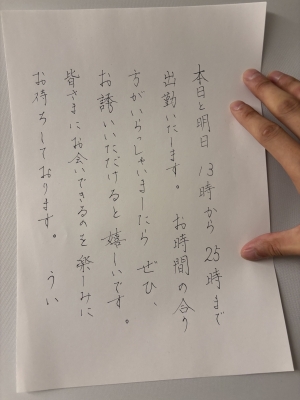 本日と明日 13時から 25時まで
出勤いたします。 お時間の合う
方がいらっしゃいましたら ぜひ、
お誘いいただけると嬉しいです。
皆さまにお会いできるのを楽しみに
お待ちしております。 うい